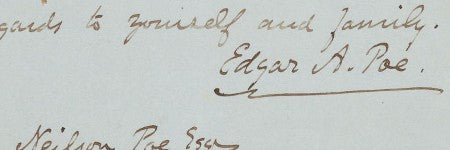 gards to yourself and family.
Edgar A. Poe.
Neilson Poe Esqr